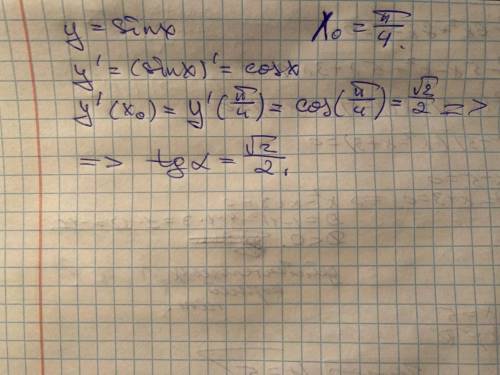 y = sinx x₀ = π/4.
y' = (sinx)' = cosx
y'(x₀) = y'(π/4) = cos(π/4) = √2/2 =>
=> tgα = √2/2.